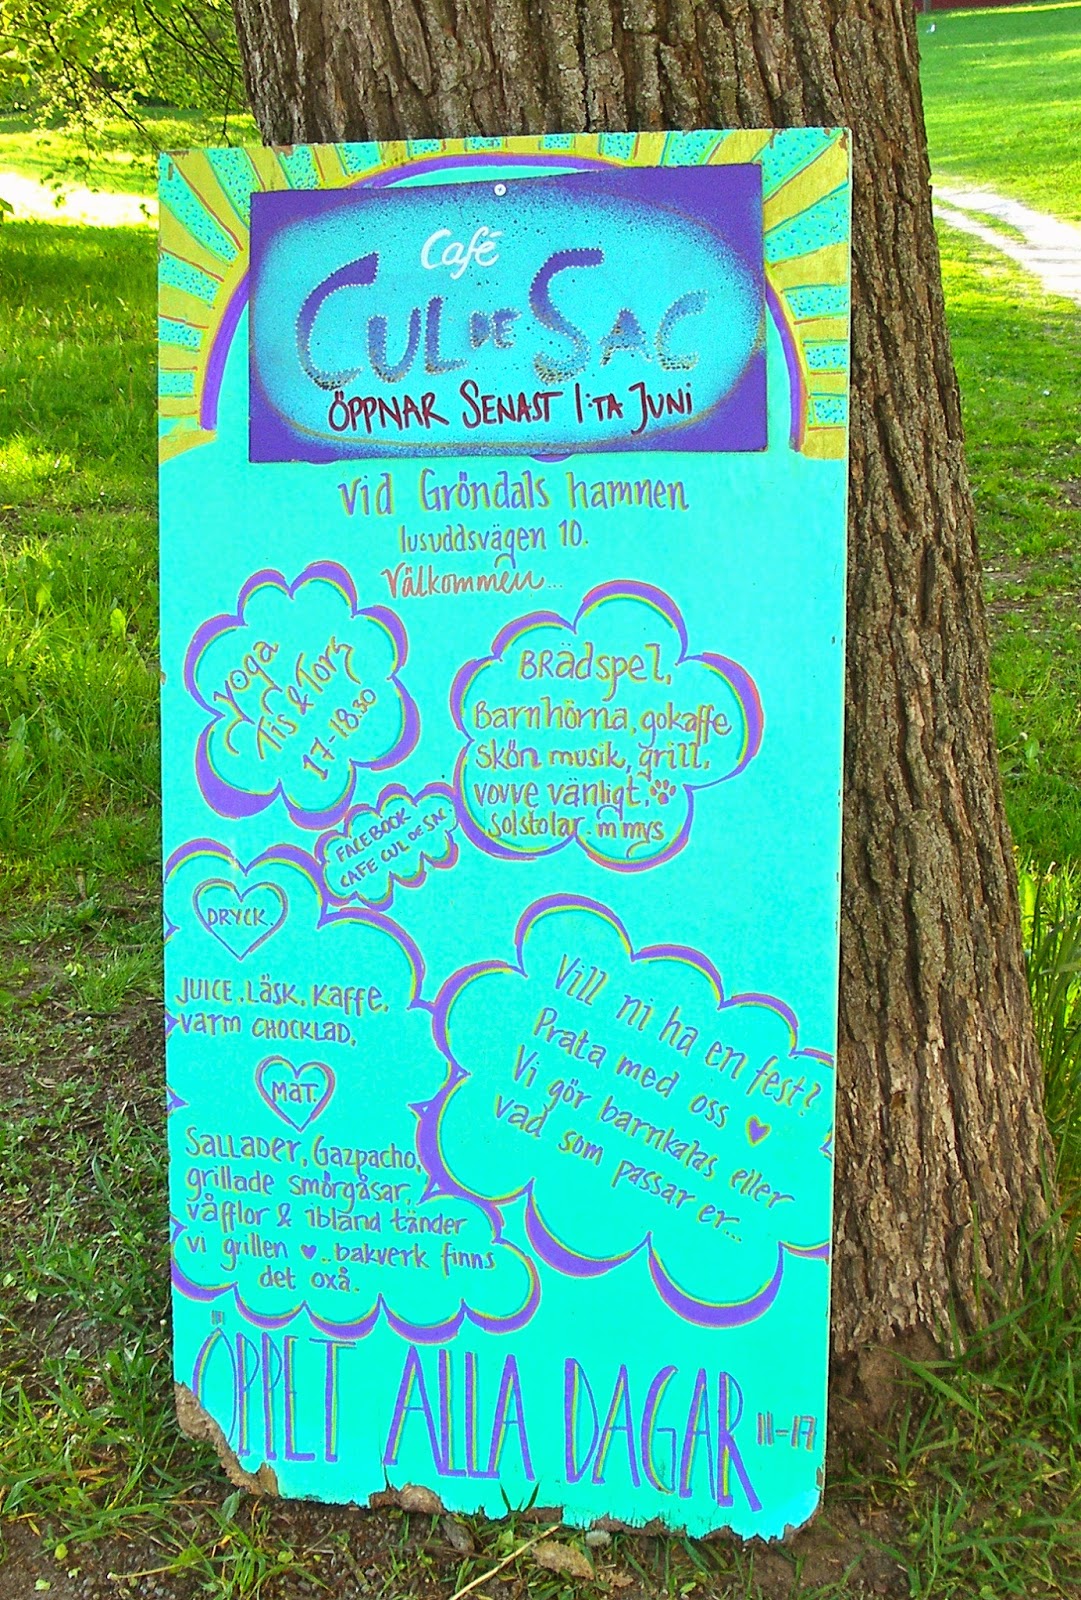 Café
CUL DE SAC
ÖPPNAR SENAST 1:TA JUNI
vid Gröndals hamnen
lusuddsvägen 10.
Välkommen...
yoga
Tis & Tors
17-18.30
BRädspel,
Barnhörna, gokaffe
skön musik, grill,
vovve vänligt,
Solstolar. m mys
FACEBOOK
CAFE CUL DE SAC.
DRYCK.
JUICE, Läsk, Kaffe,
varm CHOCKLAD,
Mat.
Sallader, Gazpacho,
grillade smörgåsar,
våfflor & ibland tänder
vi grillen ♥... bakverk finns
det oxå.
Vill ni ha en fest?
Prata med oss ♥
Vi gör barnkalas eller
vad som passar er...
ÖPPET ALLA DAGAR 11-17